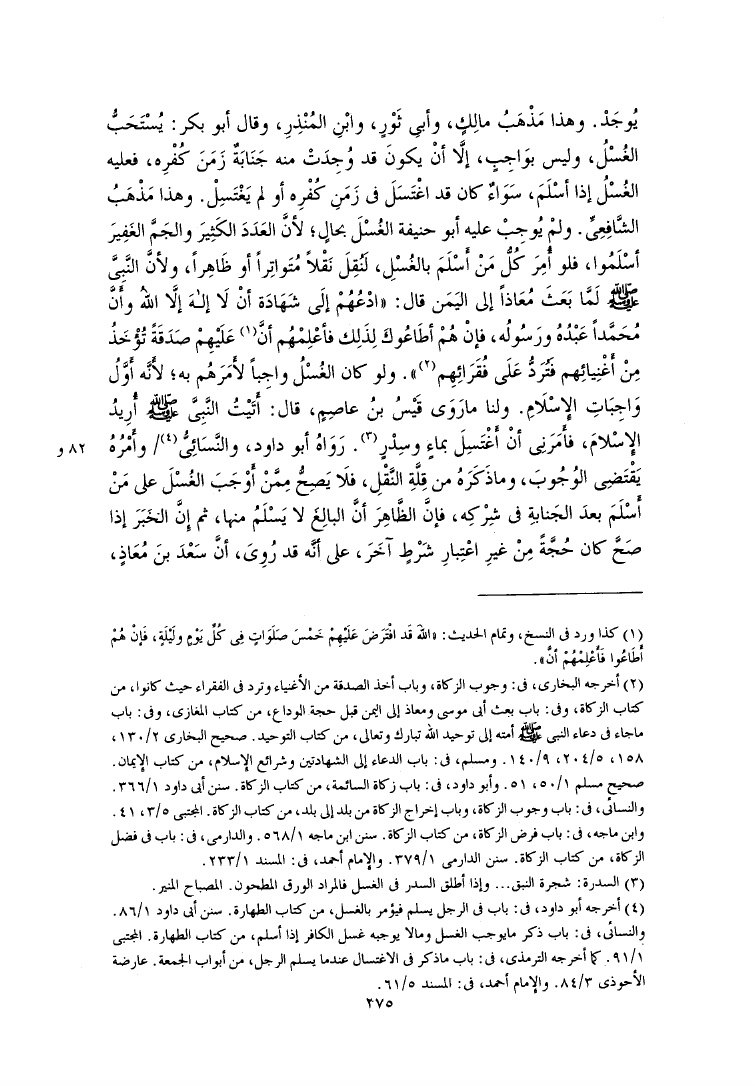 يُوجَدْ. وهذا مَذْهَبُ مالِكٍ، وأبى ثَوْرٍ، وابْنِ المُنْذِرِ، وقال أبو بكر: يُسْتَحَبُّ
الغُسْلُ، وليس بوَاجِبٍ، إلَّا أنْ يكونَ قد وُجِدَتْ منه جَنَابَةٌ زَمَنَ كُفْرِه، فعليه
الغُسْلُ إذا أسْلَمَ، سَوَاءٌ كان قد اغْتَسَلَ فى زَمَنِ كُفْرِه أو لم يَغْتَسِلْ. وهذا مَذْهَبُ
الشَّافِعِىِّ. ولمْ يُوجِبْ عليه أبو حنيفة الغُسْلَ بحالٍ؛ لأنَّ العَدَدَ الكَثِيرَ والجَمَّ الغَفِيرَ
أسْلَمُوا، فلو أُمِرَ كُلُّ مَنْ أَسْلَمَ بالغُسْلِ، لَنُقِلَ نَقْلاً مُتَواتِراً أو ظَاهِراً، ولأنَّ النَّبِىَّ
ﷺ لَمَّا بَعَثَ مُعَاذاً إلى اليَمَنِ قال: «ادْعُهُمْ إلَى شَهَادَةِ أنْ لَا إلـٰهَ إلَّا اللهُ وأنَّ
مُحَمَّداً عَبْدُهُ ورَسُولُه، فإنْ هُمْ أطَاعُوكَ لِذَلِك فأعْلِمْهُم أنَّ(١) عَلَيْهِمْ صَدَقَةً تُؤْخَذُ
مِنْ أغْنِيائِهم فَتُرَدُّ عَلَى فُقَرَائِهم(٢)». ولو كان الغُسْلُ واجِباً لأمَرَهُم به؛ لأنَّه أوَّلُ
وَاجِبَاتِ الإسْلَامِ. ولنا مارَوَى قَيْسُ بنُ عاصِمٍ، قال: أتَيْتُ النَّبِىَّ ﷺ أُرِيدُ
الإسْلامَ، فأمَرَنِى أنْ أغْتَسِلَ بماءٍ وسِدْرٍ(٣). رَوَاهُ أبو داود، والنَّسائِىُّ(٤)/ وأمْرُهُ ٨٢ و
يَقْتَضِى الوُجُوبَ، وماذَكَرَهُ من قِلَّةِ النَّقْلِ، فلا يَصِحُّ مِمَّنْ أوْجَبَ الغُسْلَ على مَنْ
أسْلَمَ بعدَ الجَنابةِ فى شِرْكِه، فإنَّ الظَّاهِرَ أنَّ البالِغَ لا يَسْلَمُ منها، ثم إنَّ الخَبَرَ إذا
صَحَّ كان حُجَّةً مِنْ غيرِ اعْتِبارِ شَرْطٍ آخَرَ، على أنَّه قد رُوِىَ، أنَّ سَعْدَ بنَ مُعَاذٍ،
(١) كذا ورد فى النسخ، وتمام الحديث: «اللهَ قَد افْتَرَضَ عَلَيْهِمْ خَمْسَ صَلَوَاتٍ فِى كُلِّ يَوْمٍ ولَيْلَةٍ، فَإنْ هُمْ
أطَاعُوا فَأعْلِمْهُمْ أنَّ».
(٢) أخرجه البخارى، فى: وجوب الزكاة، وباب أخذ الصدقة من الأغنياء وترد فى الفقراء حيث كانوا، من
كتاب الزكاة، وفى: باب بعث أبى موسى ومعاذ إلى اليمن قبل حجة الوداع، من كتاب المغازى، وفى: باب
ماجاء فى دعاء النبى ﷺ أمته إلى توحيد الله تبارك وتعالى، من كتاب التوحيد. صحيح البخارى ١٣٠/٢،
١٥٨، ٢٠٤/٥، ١٤٠/٩. ومسلم، فى: باب الدعاء إلى الشهادتين وشرائع الإسلام، من كتاب الإيمان.
صحيح مسلم ٥٠/١، ٥١. وأبو داود، فى: باب زكاة السائمة، من كتاب الزكاة. سنن أبى داود ٣٦٦/١.
والنسائى، فى: باب وجوب الزكاة، وباب إخراج الزكاة من بلد إلى بلد، من كتاب الزكاة. المجتبى ٣/٥، ٤١.
وابن ماجه، فى: باب فرض الزكاة، من كتاب الزكاة. سنن ابن ماجه ٥٦٨/١. والدارمى، فى: باب فى فضل
الزكاة، من كتاب الزكاة. سنن الدارمى ٣٧٩/١. والإمام أحمد، فى: المسند ٢٣٣/١.
(٣) السدرة: شجرة النبق... وإذا أطلق السدر فى الغسل فالمراد الورق المطحون. المصباح المنير.
(٤) أخرجه أبو داود، فى: باب فى الرجل يسلم فيؤمر بالغسل، من كتاب الطهارة. سنن أبى داود ٨٦/١.
والنسائى، فى: باب ذكر مايوجب الغسل ومالا يوجبه غسل الكافر إذا أسلم، من كتاب الطهارة. المجتبى
٩١/١. كما أخرجه الترمذى، فى: باب ماذكر فى الاغتسال عندما يسلم الرجل، من أبواب الجمعة. عارضة
الأحوذى ٨٤/٣. والإمام أحمد، فى: المسند ٦١/٥.
٢٧٥